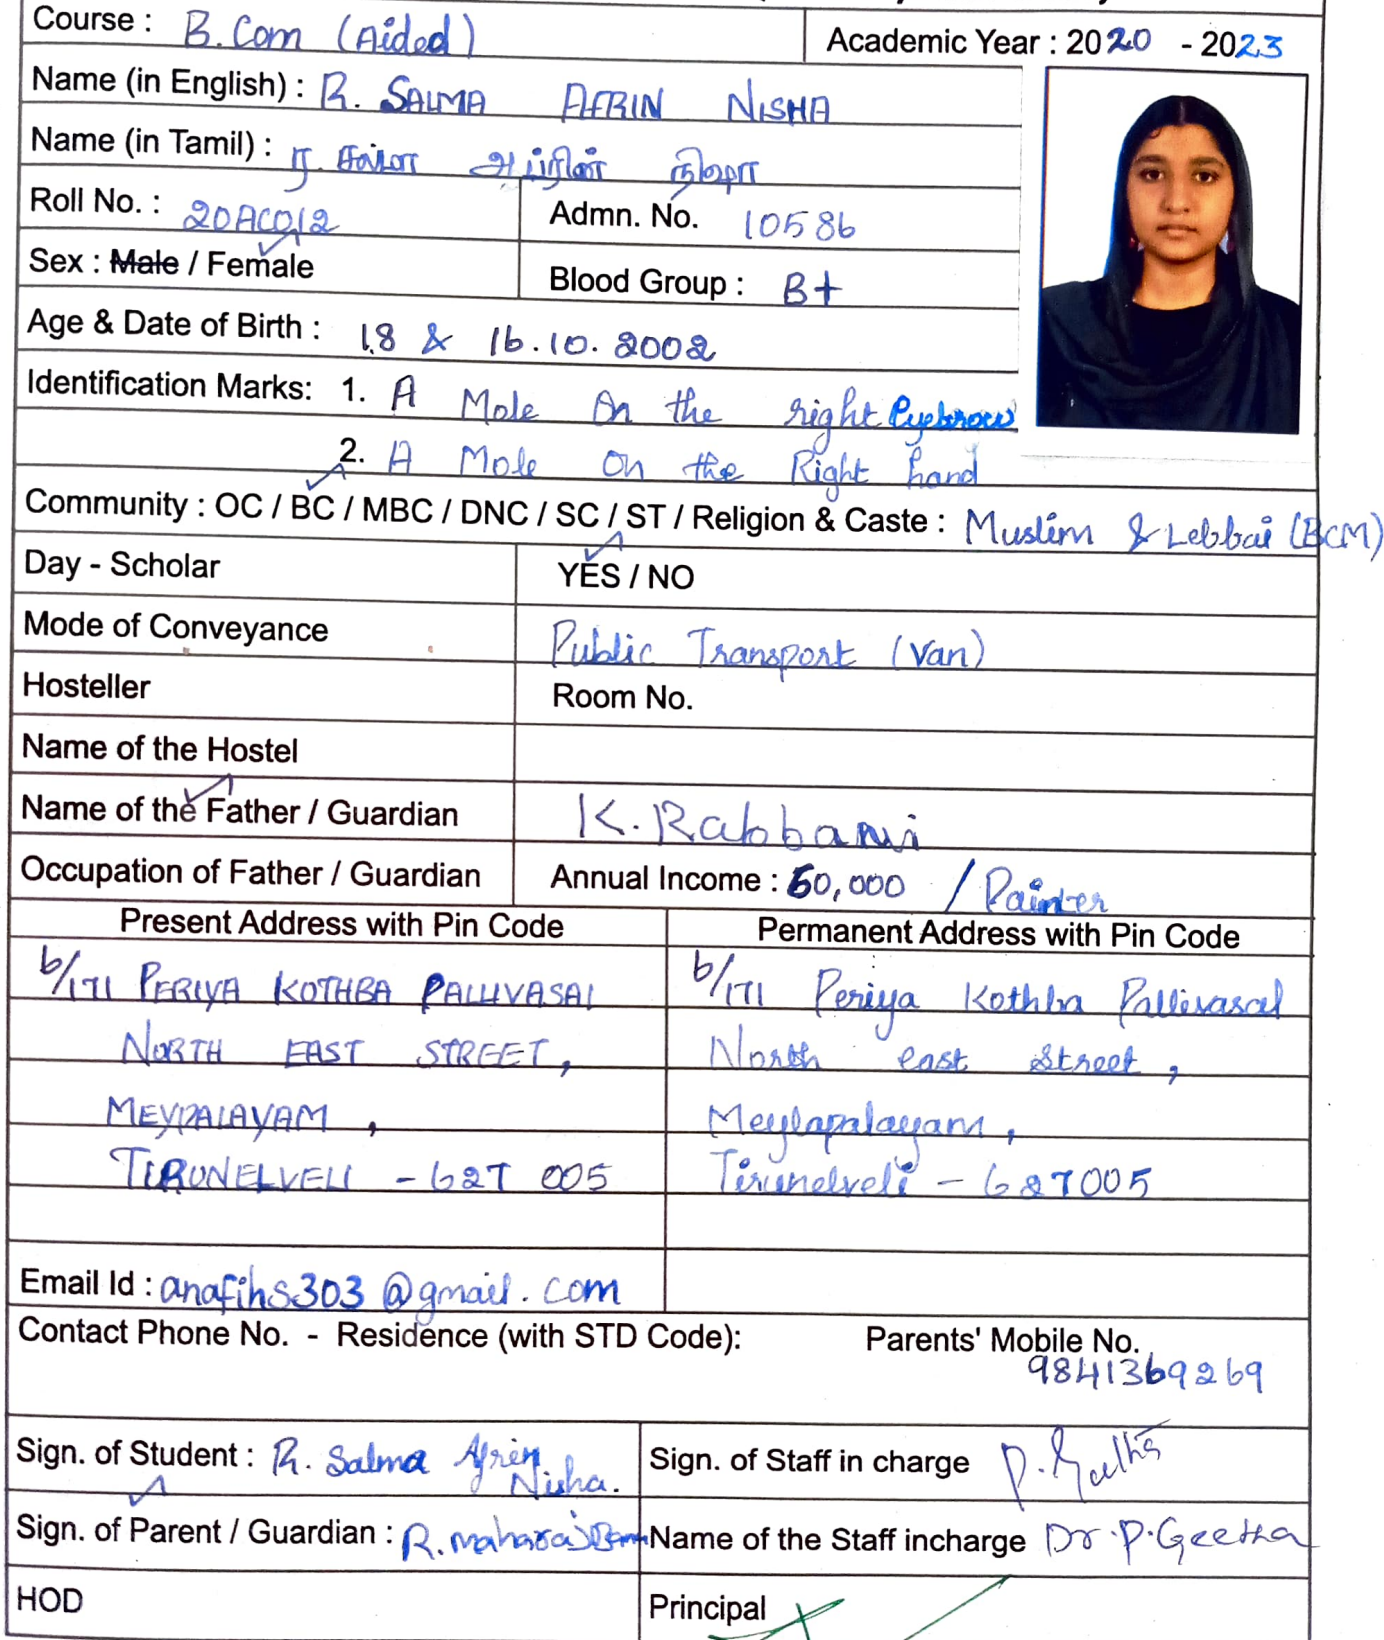 Course : B.Com (Aided)
Academic Year : 2020 - 2023
Name (in English) : R. SALMA AFRIN NISHA
Name (in Tamil) : ர. சல்மா அப்ரின் நிஷா
Roll No. : 20ACO12
Admn. No. 10586
Sex : Male / Female
Blood Group : B+
Age & Date of Birth : 18 & 16.10.2002
Identification Marks: 1. A Mole On the right Eyebrow
2. A Mole on the Right hand
Community : OC / BC / MBC / DNC / SC / ST / Religion & Caste : Muslim & Lebbai (BCM)
Day - Scholar
YES / NO
Mode of Conveyance
Public Transport (Van)
Hosteller
Room No.
Name of the Hostel
Name of the Father / Guardian
K. Rabbani
Occupation of Father / Guardian
Annual Income : 60,000 / Painter
Present Address with Pin Code
Permanent Address with Pin Code
6/171 PERIYA KOTHBA PALLIVASAL
6/171 Periya Kothba Pallivasal
NORTH EAST STREET,
North east Street,
MEYPALAYAM,
Meylapalayam,
TIRUNELVELI - 627 005
Tirunelveli - 627005
Email Id : anafihs303@gmail.com
Contact Phone No. - Residence (with STD Code):
Parents' Mobile No.
9841369269
Sign. of Student : R. Salma Afrin Nisha.
Sign. of Staff in charge P. Geetha
Sign. of Parent / Guardian : R.
Name of the Staff incharge Dr. P. Geetha
HOD
Principal